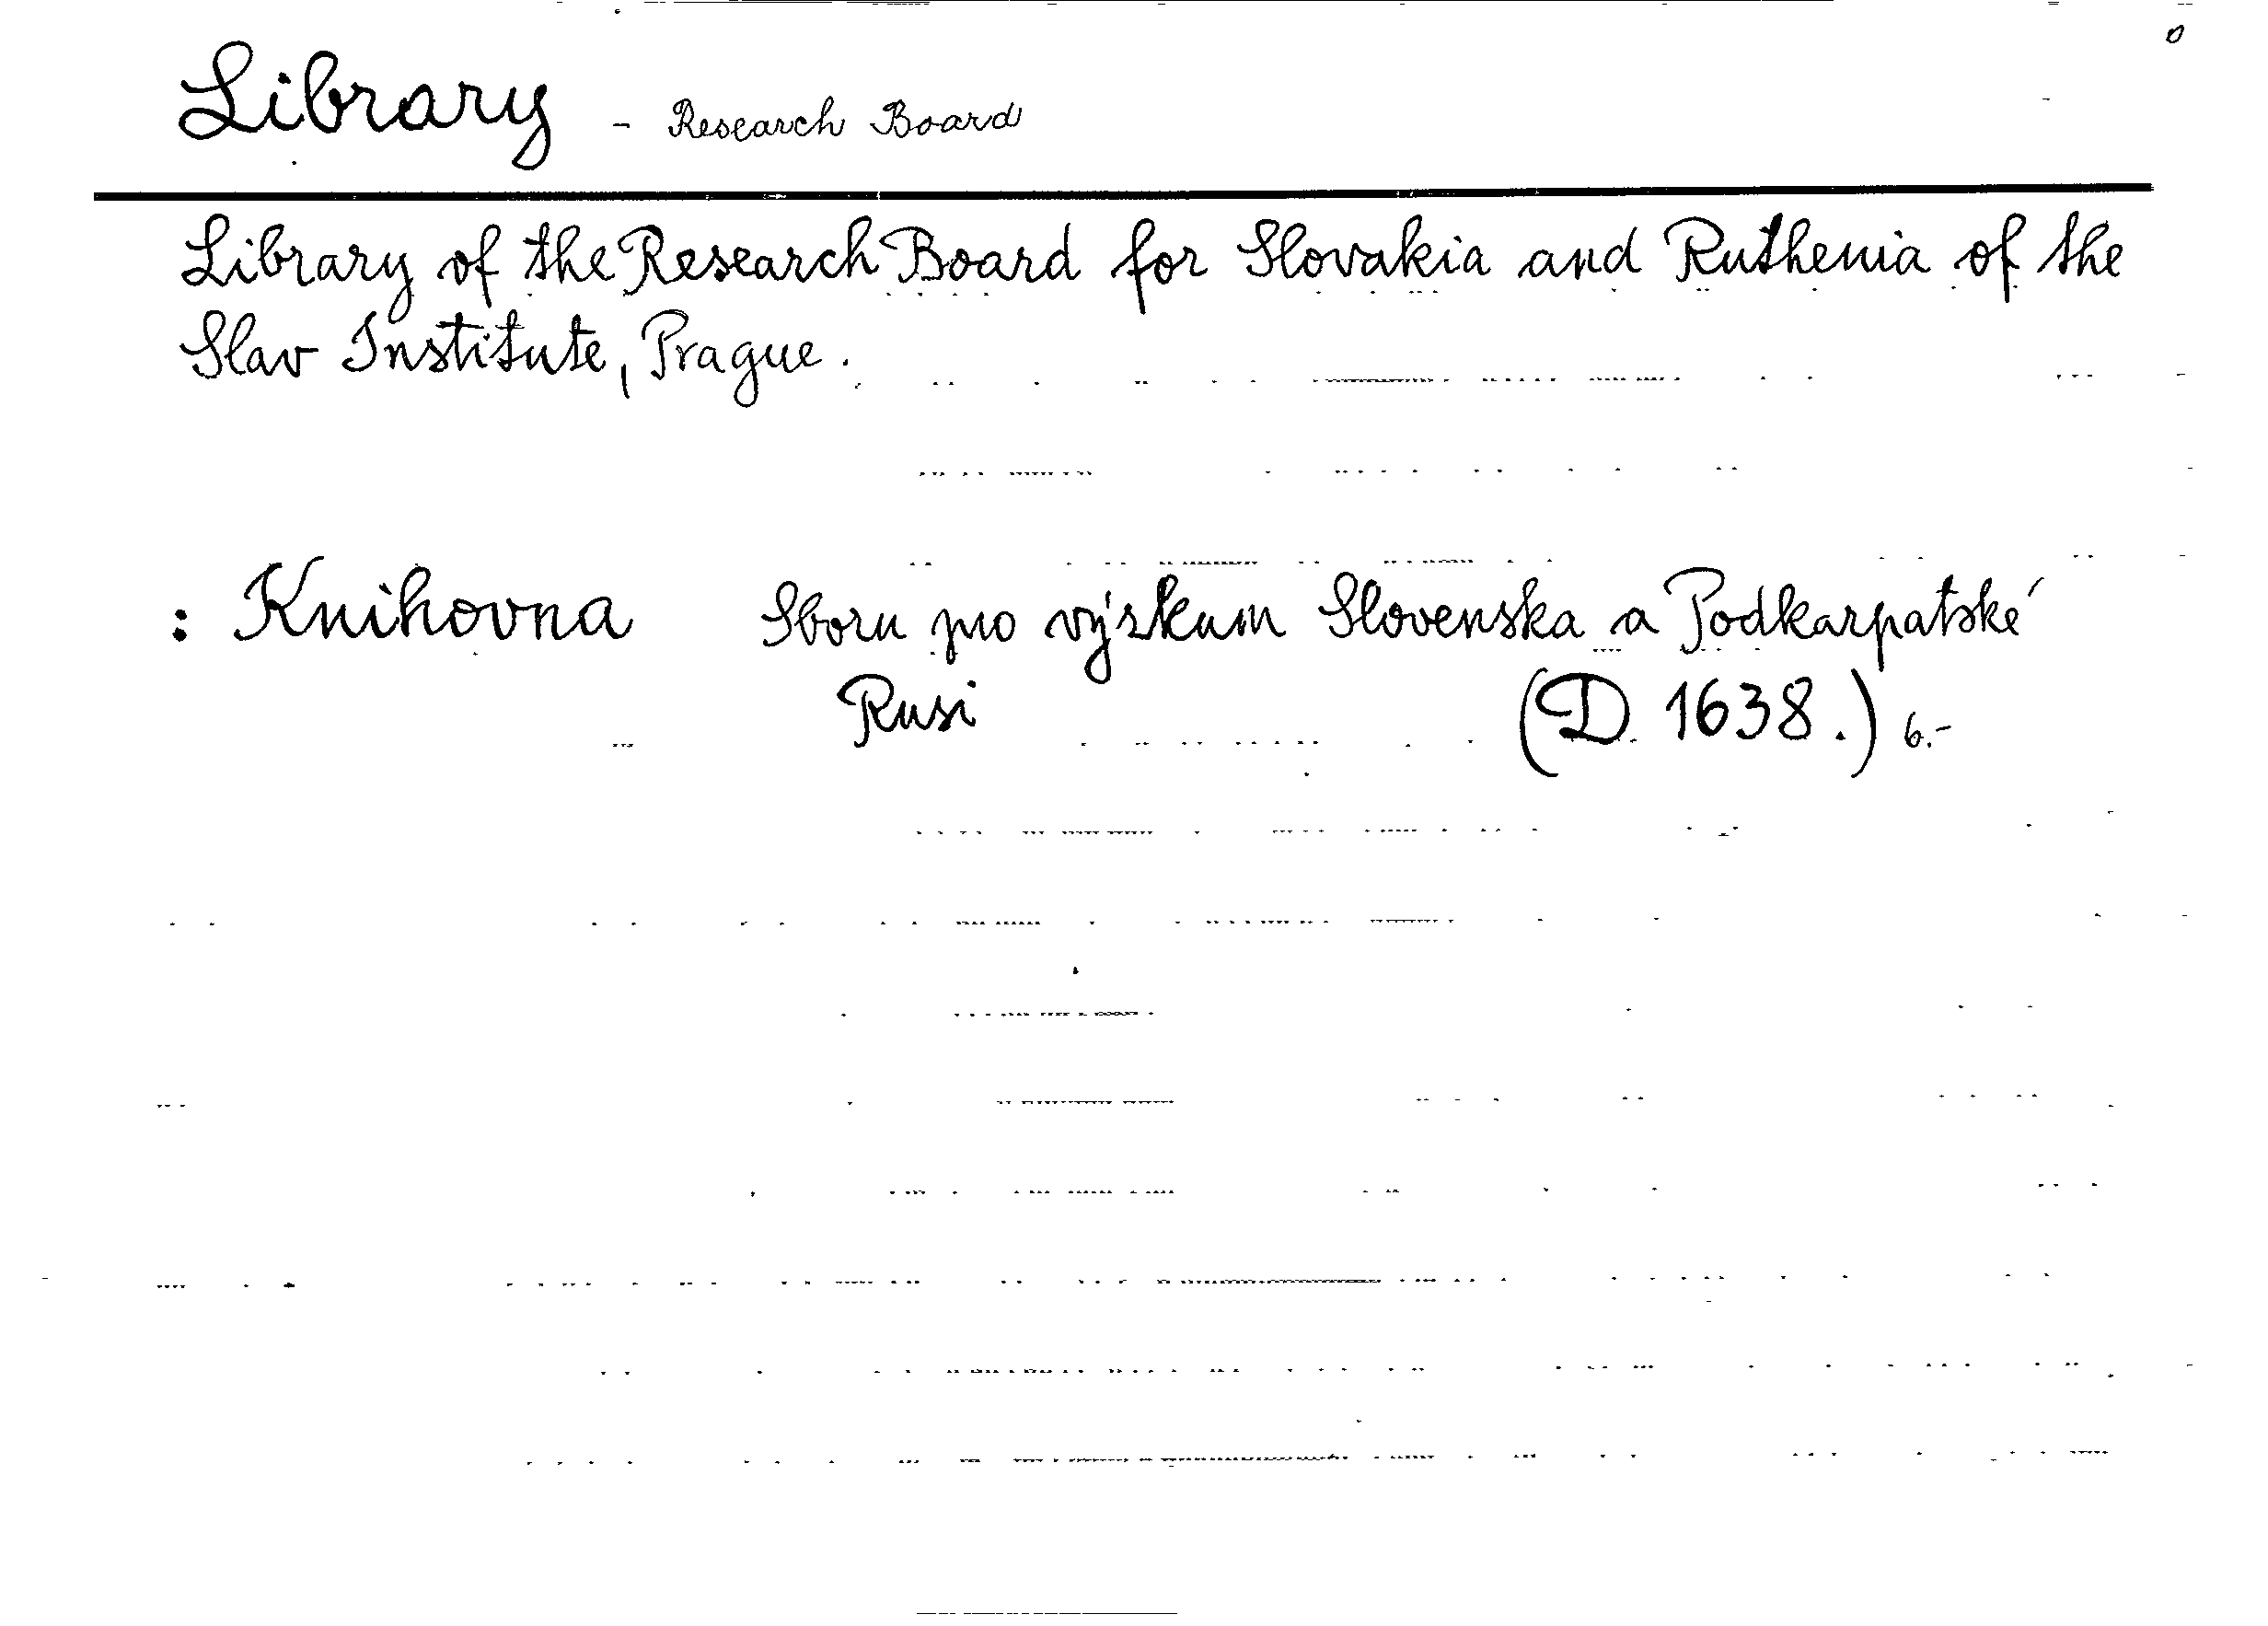 Library - Research Board
Library of the Research Board for Slovakia and Ruthenia of the
Slav Institute, Prague.
: Knihovna Sboru pro výzkum Slovenska a Podkarpatské
Rusi (D. 1638.) 6.-